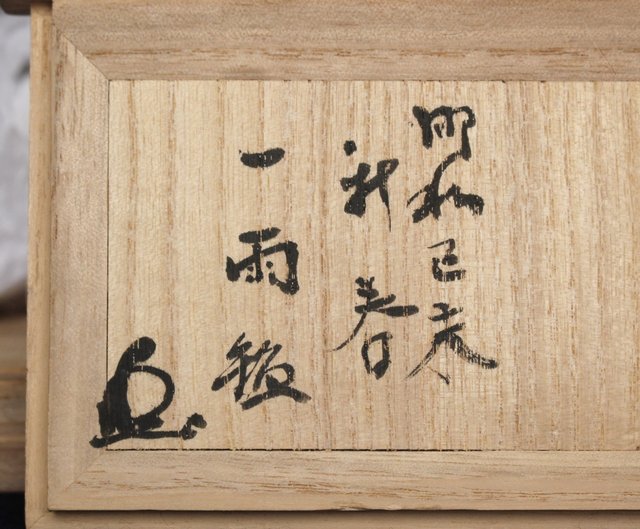 昭和己未
新春
一雨鑑